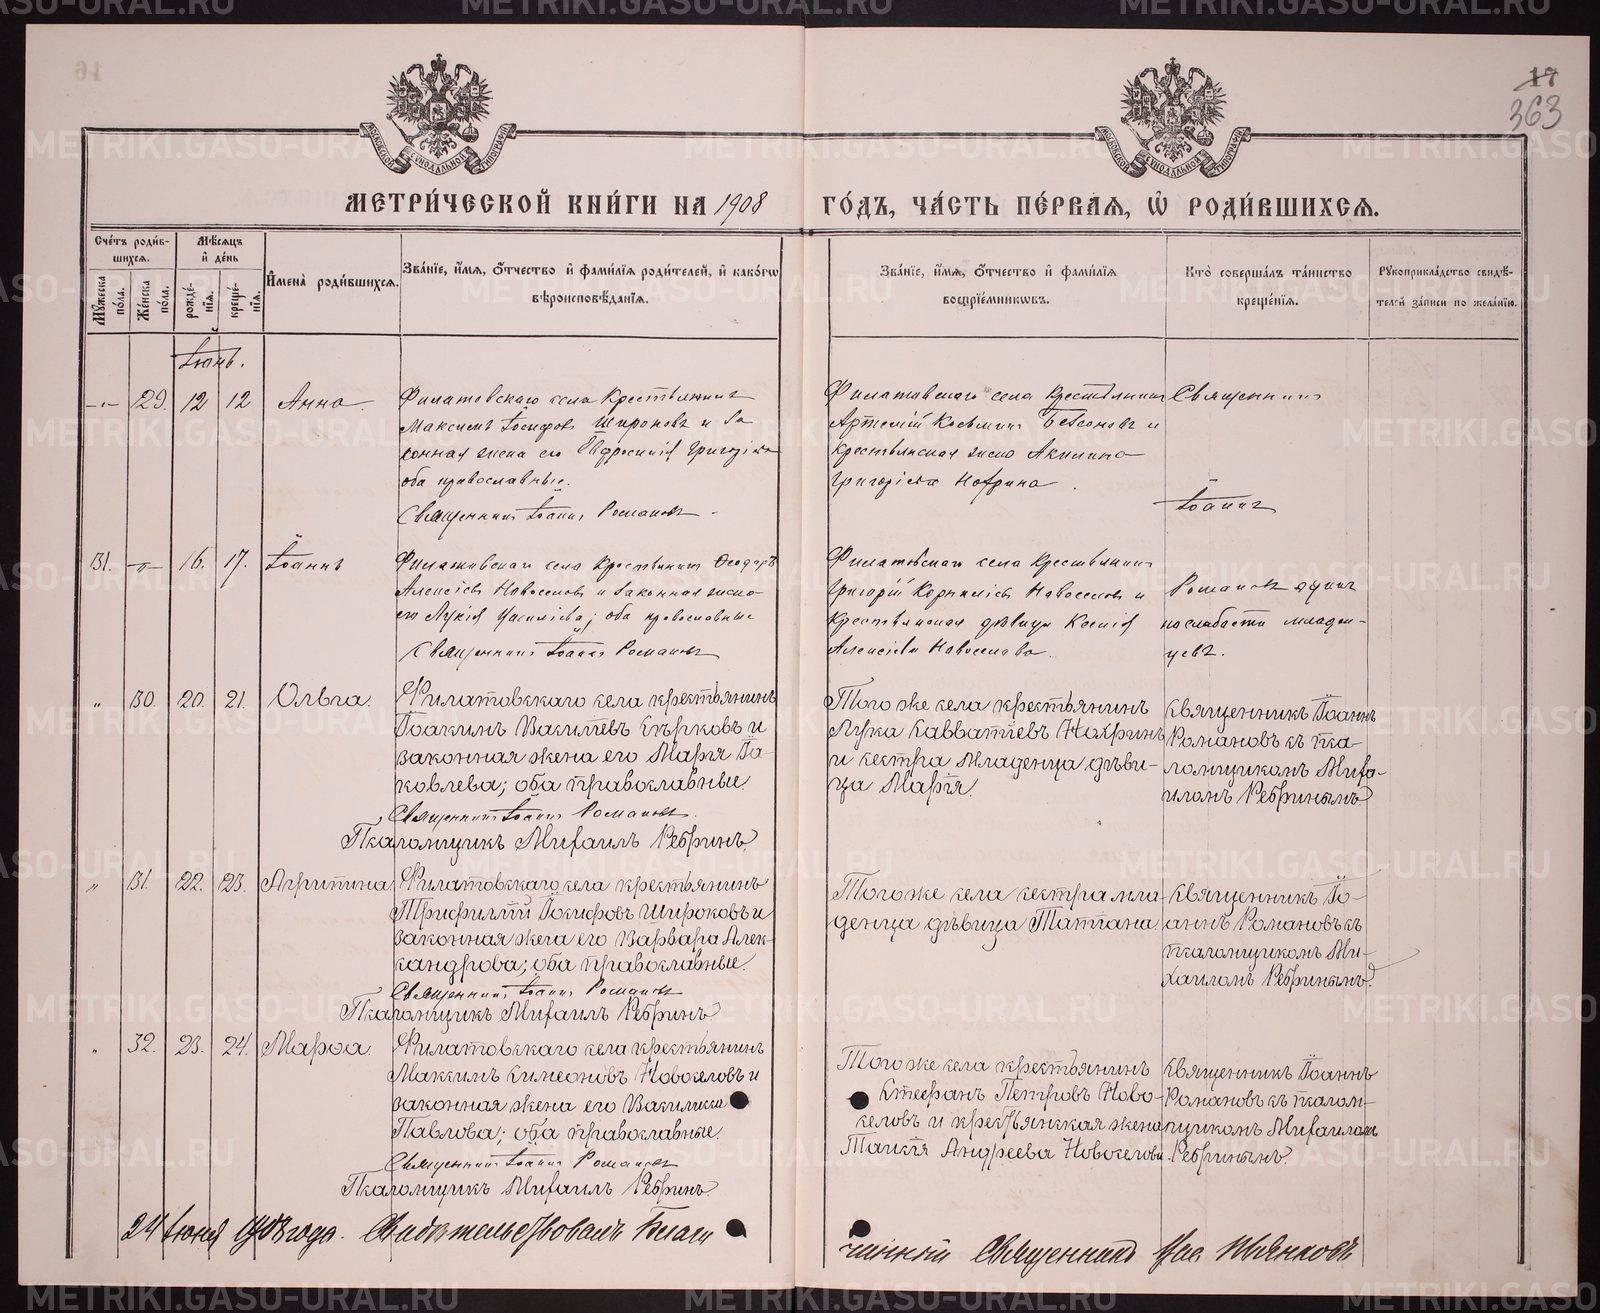 17
363
МЕТРИ́ЧЕСКОЙ КНИ́ГИ НА 1908 ГО́ДЪ, ЧА́СТЬ ПЕ́РВАЯ, Ѡ РОДИ́ВШИХСЯ.
Сче́тъ роди́в-
шихся.
Мꙋ́жеска по́ла.
Же́нска по́ла.
Мѣ́сяцъ
и̂ де́нь
рожде́-
нїя.
креще́-
нїя.
И̂мена̀ роди́вшихся.
Зва́нїе, и́мя, ѻ́тчество и̂ фами́лїя роди́телей, и̂ како́гѡ
вѣроисповѣ́данїя.
Зва́нїе, и́мя, ѻ́тчество и̂ фами́лїя
воспрїе́мниковъ.
Кто̀ соверша́лъ та́инство
креще́нїя.
Рꙋкоприкла́дство свидѣ́-
телей за́писи по жела́нїю.
Іюнь.
29. 12 12 Анна
Филатовскаго села Крестьянинъ
Максимъ Іосифовъ Широковъ и за
конная жена его Евфросинія Григоріева
оба православные.
Священникъ Іоаннъ Романовъ
Филатовскаго села Крестьянинъ
Артемій Косьминъ и
крестьянская жена Акилина
Григоріева Нохрина.
Священникъ
Іоаннъ
31. 16. 17. Іоаннъ
Филатовскаго села Крестьянинъ Ѳеодоръ
Алексіевъ Новоселовъ и законная жена
его Лукія; оба православные
Священникъ Іоаннъ Романовъ
Филатовскаго села Крестьянинъ
Григорій Корниліевъ Новоселовъ и
Крестьянская дѣвица Ксенія
Алексіева Новоселова.
Романовъ одинъ
по слабости младен-
цевъ.
" 30. 20. 21. Ольга.
Филатовскаго села крестьянинъ
Іоакимъ Василіевъ Сырковъ и
законная жена его Марія Іа-
ковлева; оба православные.
Священникъ Іоаннъ Романовъ
Псаломщикъ Михаилъ Ребринъ
Того же села крестьянинъ
Лука Савватіевъ Нохринъ
и сестра младенца дѣви-
ца Марія.
Священникъ Іоаннъ
Романовъ съ пса-
ломщикомъ Миха-
иломъ Ребринымъ
" 31. 22. 23. Агриппина
Филатовскаго села крестьянинъ
Трифиллій Іосифовъ Широковъ и
законная жена его Варвара Алек-
сандрова; оба православные.
Священникъ Іоаннъ Романовъ
Псаломщикъ Михаилъ Ребринъ
Того же села сестра мла-
денца дѣвица Татіана
Священникъ Іо-
аннъ Романовъ съ
псаломщикомъ Ми-
хаиломъ Ребринымъ.
" 32. 23. 24. Марѳа.
Филатовскаго села крестьянинъ
Максимъ Симеоновъ Новоселовъ и
законная жена его Василисса
Павлова; оба православные.
Священникъ Іоаннъ Романовъ
Псаломщикъ Михаилъ Ребринъ.
Того же села крестьянинъ
Стефанъ Петровъ Ново-
селовъ и крестьянская жена
Таисія Андреева Новоселова.
Священникъ Іоаннъ
Романовъ съ псалом-
щикомъ Михаиломъ
Ребринымъ.
24 Іюня 1908 года. Свидѣтельствовалъ Благо
чинный Священникъ
METRIKI.GASO-URAL.RU